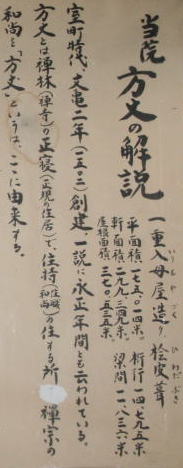 当院 方丈の解説
一重入母屋造り、桧皮葺
いりもやづくり ひわだぶき
平面積 一七五・〇一四米。桁行 一四、七九五米
軒面積 二九九、三四九米、梁間 一一、八三六米
屋根面積 三七〇、五三五米
室町時代、文亀二年(一五〇二)創建。一説に永正年間とも云われている。
方丈とは禅林(禅寺)の正寝(正規の住居)で、住持(住職和尚)の住する所 禅宗の
和尚を「方丈」というは、ここに由来する。